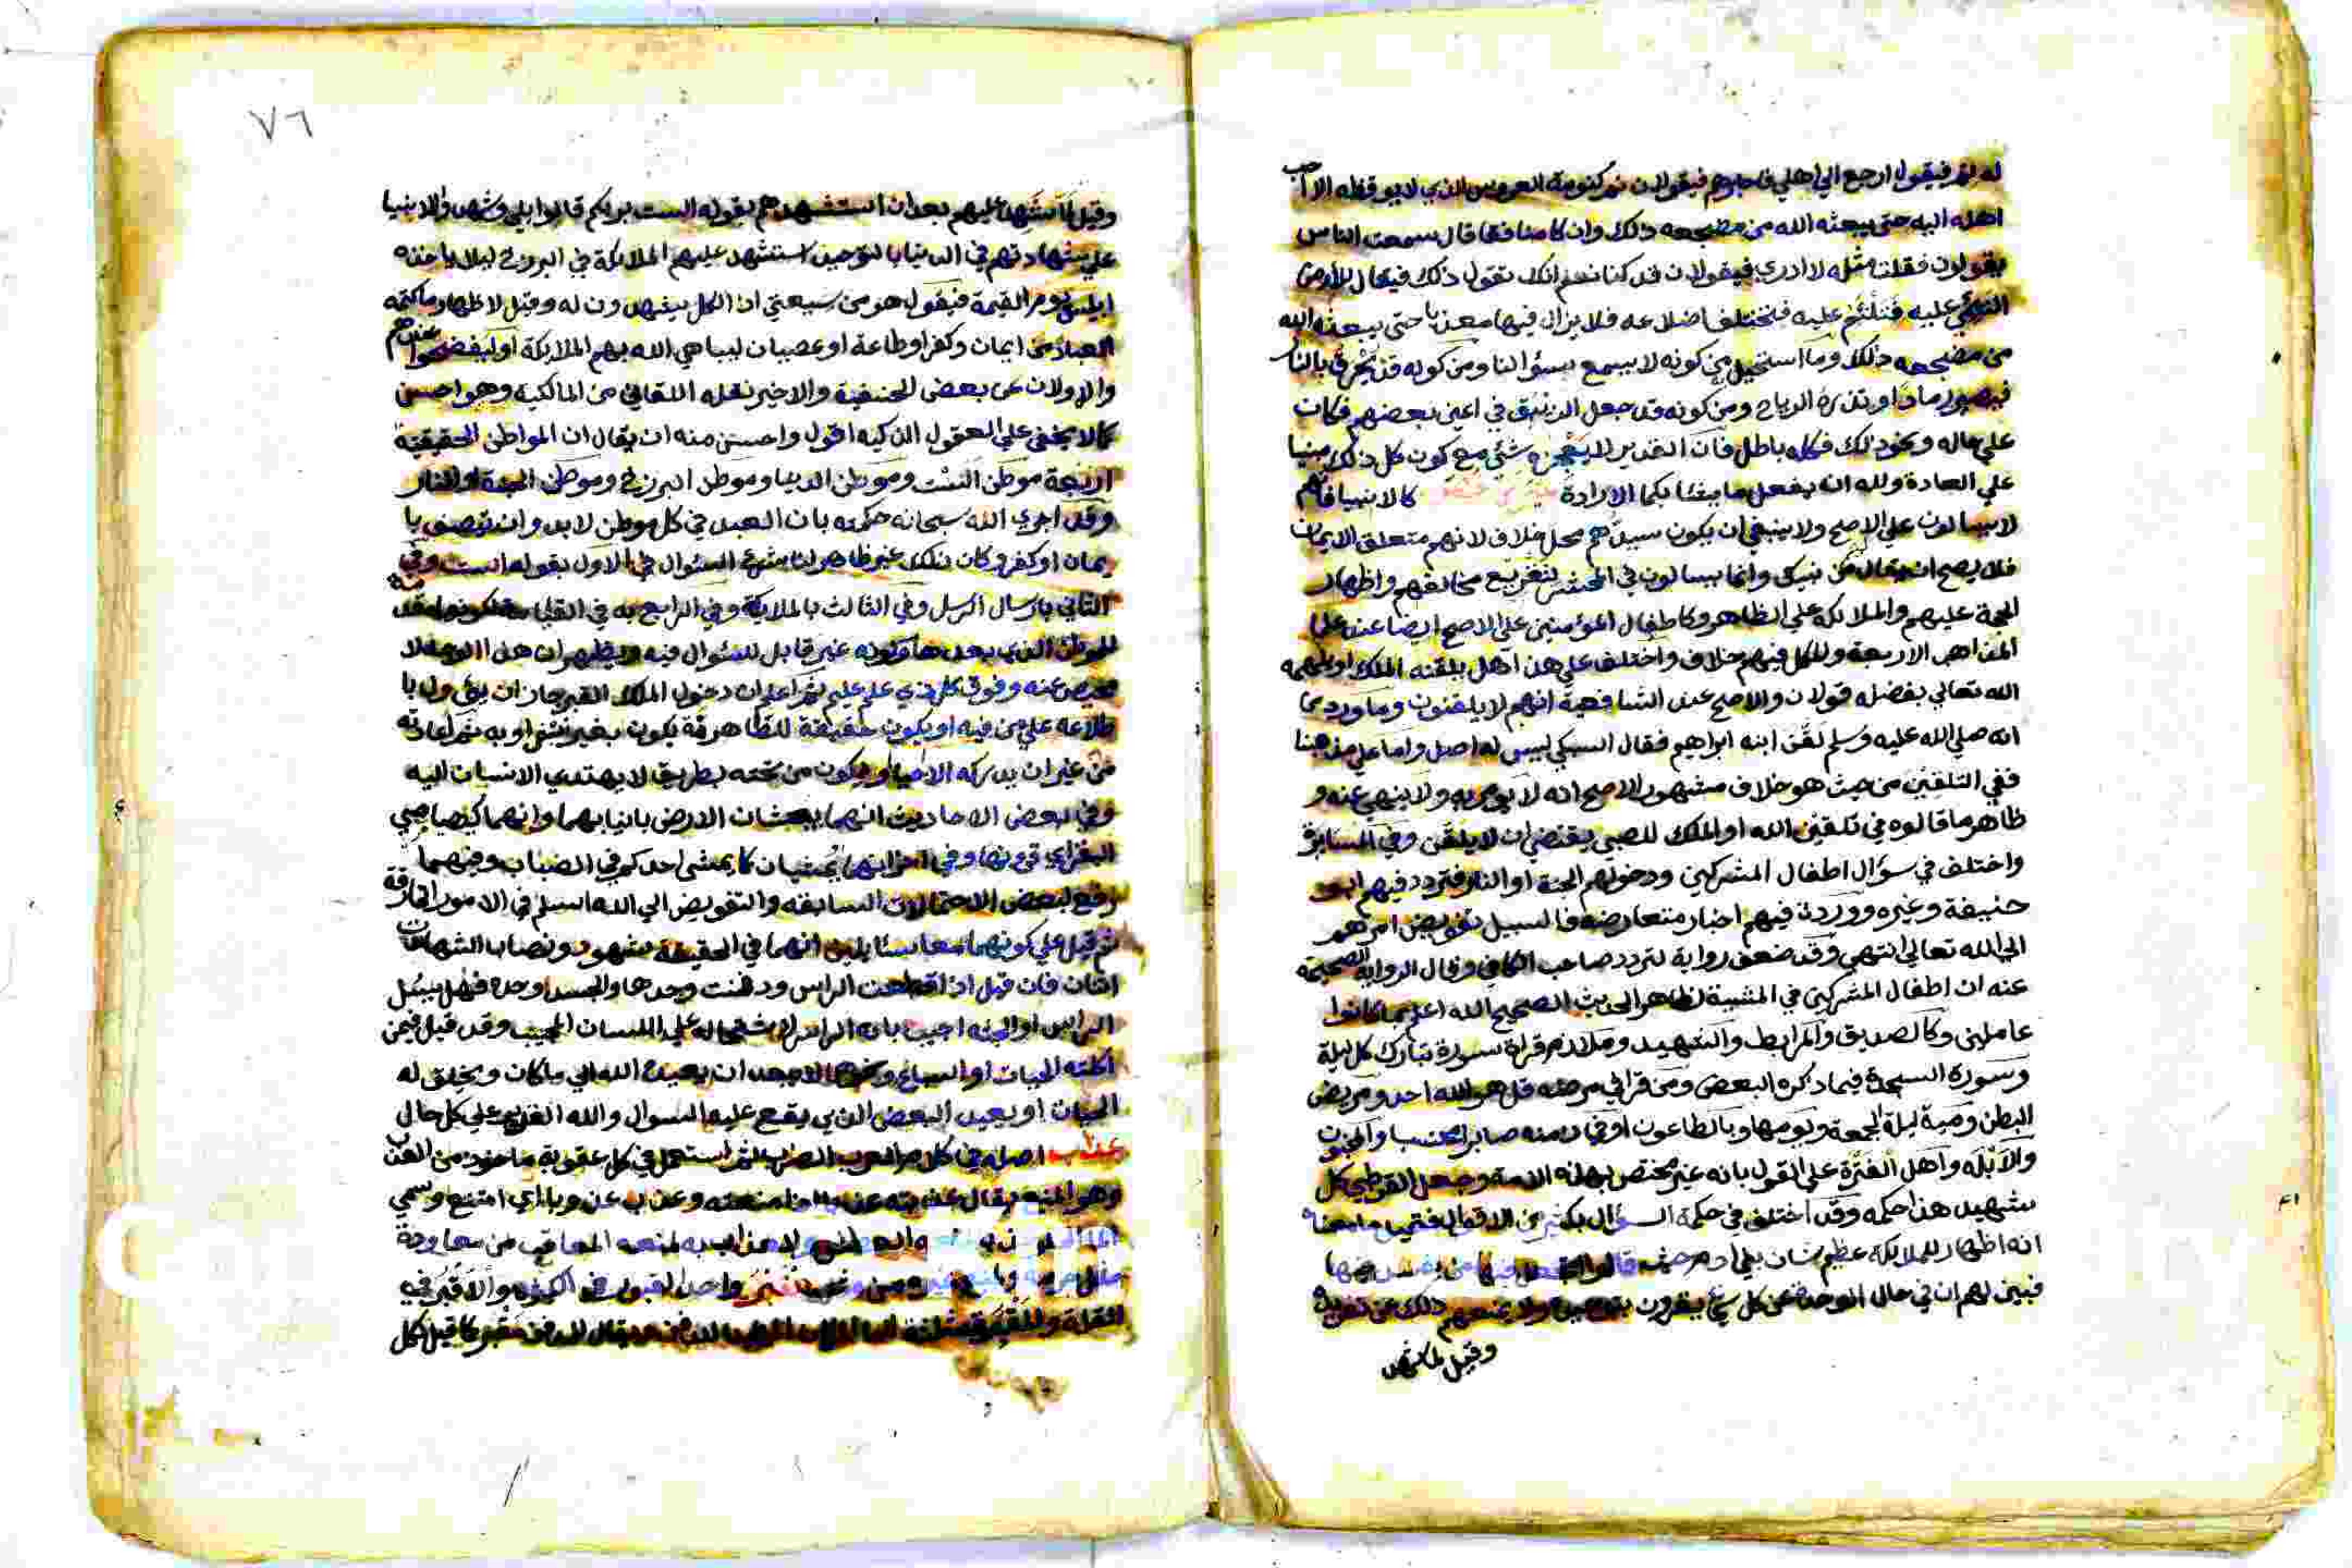 له نم فيقول ارجع الي اهلي فاخبرهم فيقولان نم كنومة العروس الذي لا يوقظه الا احب
اهله اليه حتى يبعثه الله من مضجعه ذلك وان كان منافقا قال سمعت الناس
يقولون فقلت مثله لا ادري فيقولان قد كنا نعلم انك تقول ذلك فيقال للارض
التئمي عليه فتلتئم عليه فتختلف اضلاعه فلا يزال فيها معذبا حتى يبعثه الله
من مضجعه ذلك وما استحيل من كونه لا يسمع سؤالنا ومن كونه قد يحرق بالنار
فيصير رمادا وتذره الرياح ومن كونه قد جعل الزئبق في اعين بعضهم فكان
علي حاله ونحو ذلك فكله باطل فان القدير لا يعجزه شئ مع كون كل ذلك مبنيا
علي العادة ولله ان يفعل ما يشا بكما الارادة كالانبيا فانهم
لا يسالون علي الاصح ولا ينبغي ان يكون سيدهم محل خلاف لانهم متعلق الايمان
فلا يصح ان يقال من نبيك وانما يسالون في المحشر لتقريع مخالفهم واظهار
الحجة عليهم والملائكة علي الظاهر وكاطفال المؤمنين علي الاصح ايضا عند علما
المذاهب الاربعة وللكل فيهم خلاف واختلف علي هذا هل يلقنه الملك او يلهمه
الله تعالي بفضله قولان والاصح عند الشافعية انهم لا يلقنون وما ورد من
انه صلي الله عليه وسلم لقن ابنه ابراهيم فقال السبكي ليس له اصل واما علي مذهبنا
ففي التلقين من حيث هو خلاف مشهور الاصح انه لا يومر به ولا ينهي عنه و
ظاهر ما قالوه في تلقين الله او الملك للصبي يقتضي ان لا يلقن وفي المسايرة
واختلف في سؤال اطفال المشركين ودخولهم الجنة او النار فتردد فيهم ابو
حنيفة وغيره ووردت فيهم اخبار متعارضه فالسبيل تفويض امرهم
الي الله تعالي انتهي وقد ضعف رواية لتردد صاحب الكافي وقال الرواية الصحيحة
عنه ان اطفال المشركين في المشيية لظاهر الحديث الصحيح الله اعلم بما كانوا
عاملين وكالصديق والمرابط والشهيد وملازم قراة سورة تبارك كل ليلة
وسورة السجدة فيما ذكره البعض ومن قرا في مرضه قل هو الله احد ومريض
البطن وميت ليلة الجمعة ويومها وبالطاعون او في زمنه صابرا محتسبا والمجنون
والابله واهل الفترة علي القول بانه غير مختص بهذه الامة وجعل القرطبي كل
شهيد هذا حكمه وقد اختلف في حكمة السؤال بكثير من الاقوال
انه اظهار للملائكة عظيم شان بني ادم حيث قالوا اتجعل فيها من يفسد فيها
فبين لهم ان في حال الوحدة عن كل شئ يقرون بتوحيدي ولا يمنعهم ذلك عن
وقيل لما شهد
٧٦
وقيل لما شهد عليهم بعد ان استشهدهم بقوله الست بربكم قالوا بلي وشهد الانبيا
علي شهادتهم في الدنيا بالتوحيد استشهد عليهم الملائكة في البرزخ ليلا ياخذه
ابليس يوم القيمة فيقول هو من شيعتي اذ الكل يشهدون له وقيل لاظهار ما كتمه
العباد من ايمان وكفر او طاعة او عصيان ليباهي الله بهم الملائكة او ليفضحوا عندهم
والاولان عن بعض الحنيفية والاخير نقله اللقاني من المالكية وهو احسن
كما لا يخفي علي العقول الذكيه اقول واحسن منه ان يقال ان المواطن الحقيقية
اربعة موطن الست وموطن الدنيا وموطن البرزخ وموطن الجنة او النار
وقد اجري الله سبحانه حكمته بان العبد في كل موطن لابد وان يتصف با
يمان او كفر وكان ذلك غير ظاهر لنا شرع السؤال في الاول بقوله الست وفي
الثاني بارسال الرسل وفي الثالث بالملائكة وفي الرابع به في القيامة
للموطن الذي بعدها وكونه غير قابل للسؤال فيه ويظهر ان هذا الوجه لا
محيص عنه وفوق كل ذي علم عليم ثم اعلم ان دخول الملك القبر جاز ان يؤول با
طلاعه علي من فيه او يكون حقيقة للطاهر فيكون بغير نبش او به ثم اعادته
من غير ان يدركه الاحيا او يكون من تحته بطريق لا يهتدي الانسان اليه
وفي بعض الاحاديث انهما يبحثان الارض بانيابهما وانهما كصياصي
البقر اي قرونها وفي اخر انهما يمشيان كما يمشي احدكم في الضباب وفيهما
رفع لبعض الاحتمالات السابقه والتفويض الي الله اسلم في الامور الخارقة
ثم قيل علي كونهما معا سئايلين انهما في الحقيقة شهود ونصاب الشهادات
اثنان فان قيل اذا قطعت الراس ودفنت وحدها والجسد وحده فهل يسئل
الراس او الجثه اجيب بانه الراس لاشتماله علي اللسان المجيب وقد قيل فيمن
اكلته الحيات او السباع ونحوها لا يبعد ان يعيده الله الي ما كان ويخلق له
الحياة او يعيد البعض الذي يقع عليه السوال والله القدير علي كل حال
عذاب اصله في كلام العرب الضرب ثم استعمل في كل عقوبة ماخوذ من العذب
وهو المنع يقال عذبته عذبا اذا منعته وعذب عذوبا اي امتنع وسمي
لمنعه المعاقب من معاودة
واحد القبور في الكثرة والاقبر في
القلة